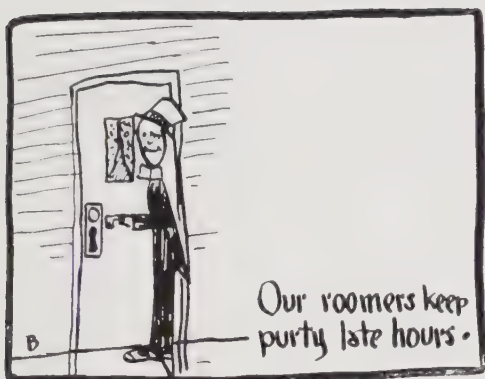 Our roomers keep
purty late hours.
B